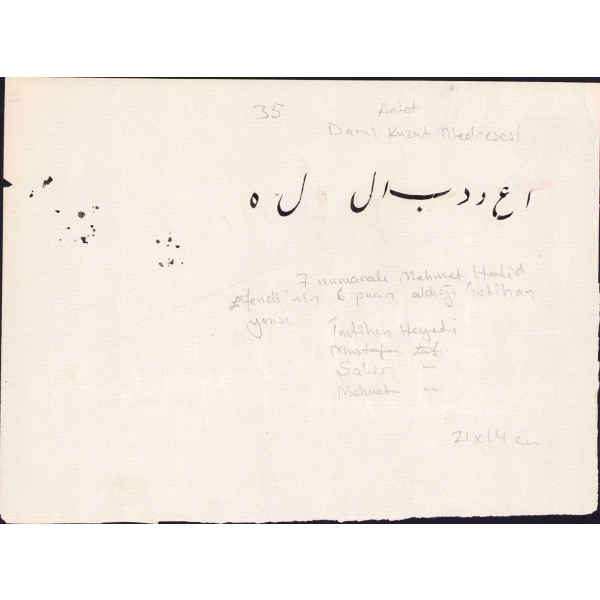 35 Antet
Darul Kuzat Medresesi
ا ع و د ب ال ل ه
7 numaralı Mehmet Halid
Efendi'nin 6 puan aldığı imtihan
yazısı İmtihan Heyeti
Mustafa Ef.
Şakir "
Mehmet "
21x14 cm